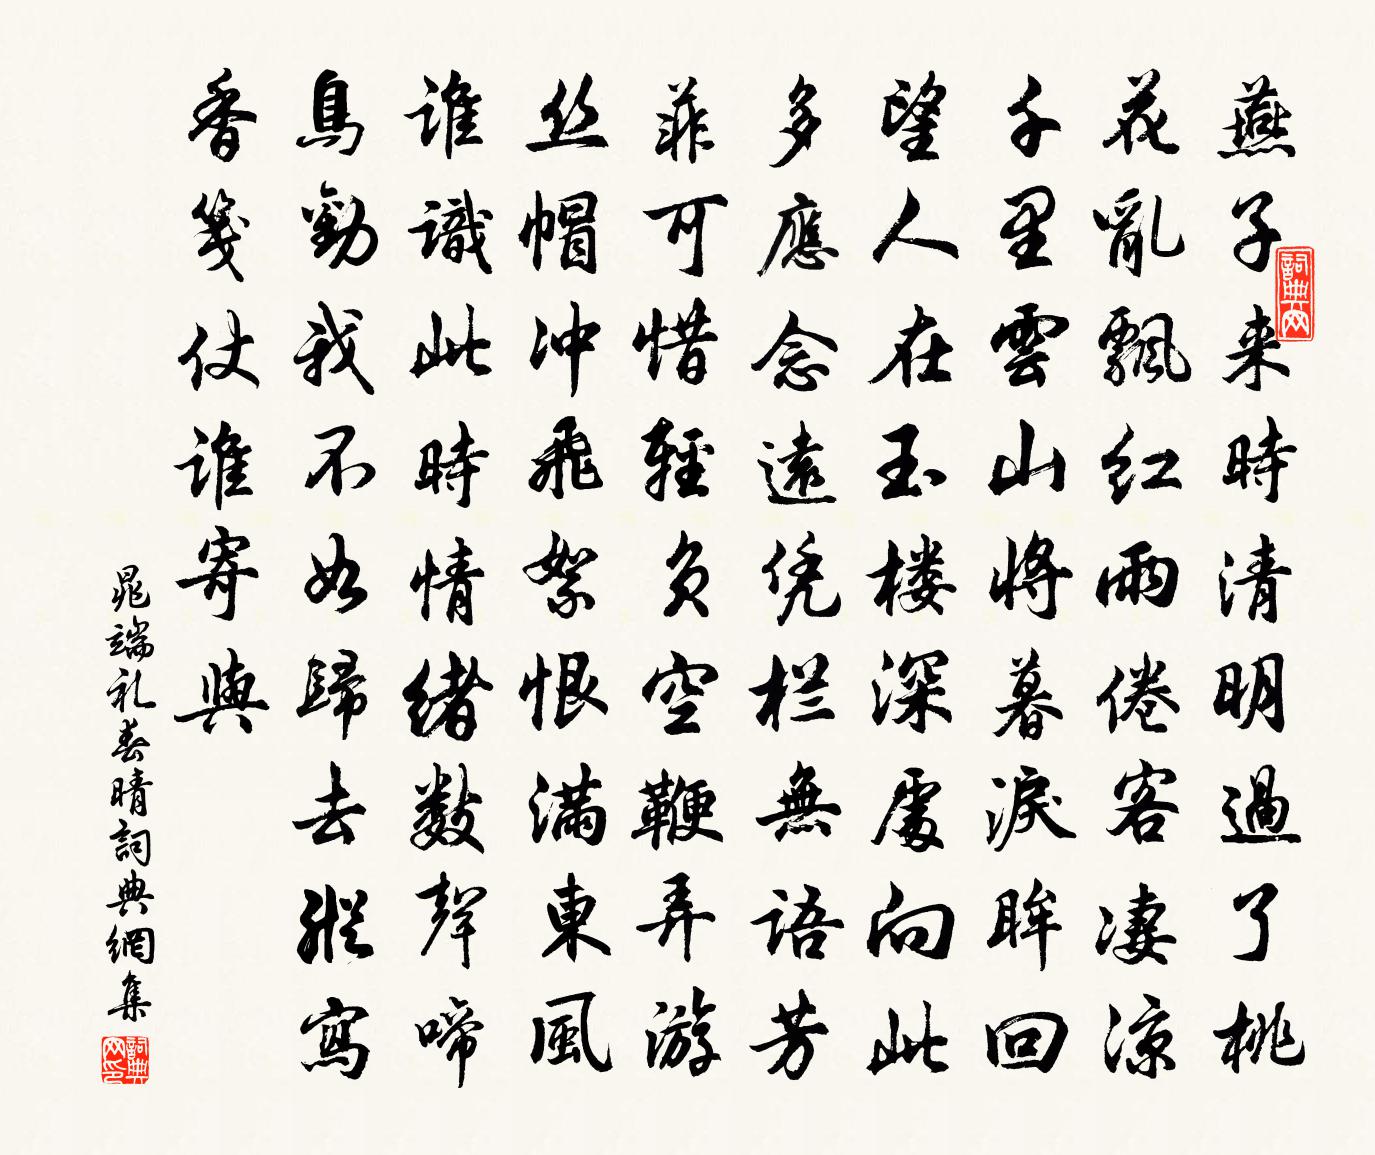 燕子来時清明過了桃
花亂飄紅雨倦客凄涼
千里雲山將暮淚眸回
望人在玉楼深處向此
多應念遠凭栏無語芳
菲可惜輕負空鞭弄游
丝帽冲飛絮恨滿東風
誰識此時情緒數聲啼
鳥勸我不如歸去縱寫
香箋仗誰寄與
晁端礼春晴詞典網集
詞典网
詞典网印